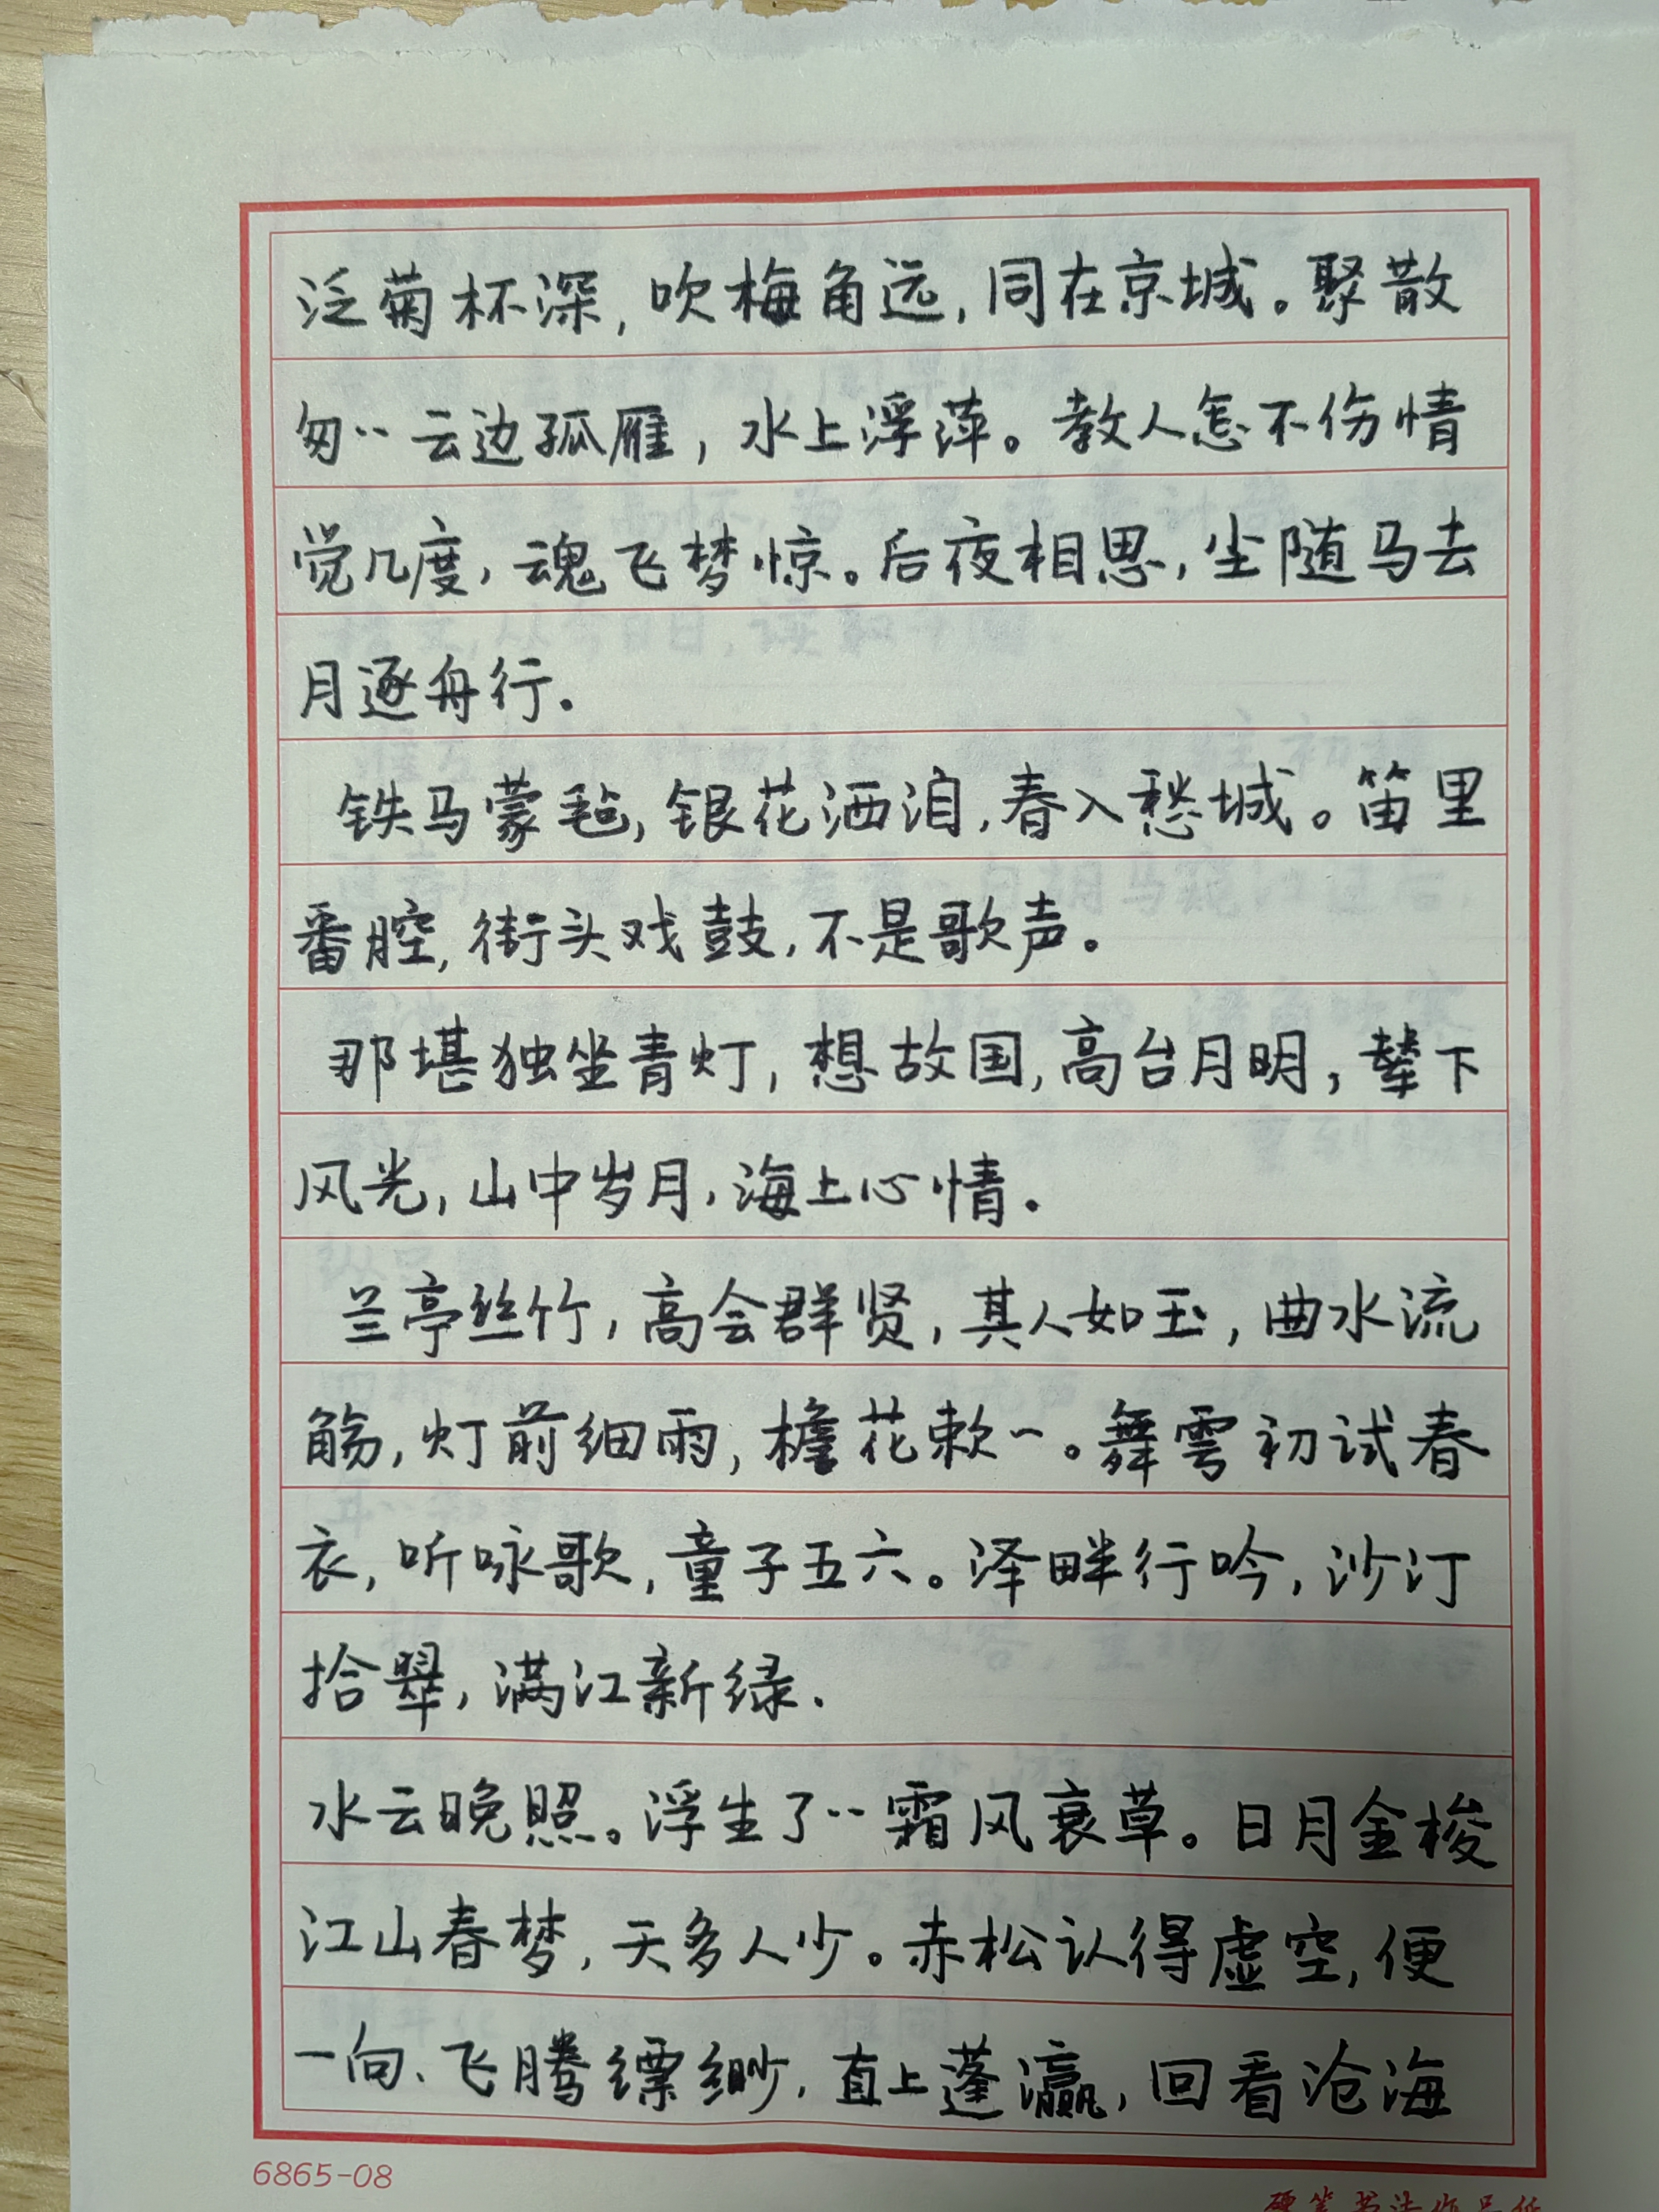 泛菊杯深,吹梅角远,同在京城。聚散
匆‥云边孤雁,水上浮萍。教人怎不伤情
觉几度,魂飞梦惊。后夜相思,尘随马去
月逐舟行.
铁马蒙毡,银花洒泪,春入愁城。笛里
番腔,街头戏鼓,不是歌声。
那堪独坐青灯,想故国,高台月明,辇下
风光,山中岁月,海上心情.
兰亭丝竹,高会群贤,其人如玉,曲水流
觞,灯前细雨,檐花欶一。舞雩初试春
衣,听咏歌,童子五六。泽畔行吟,沙汀
拾翠,满江新绿.
水云晚照。浮生了‥霜风衰草。日月金梭
江山春梦,天多人少。赤松认得虚空,便
一向、飞腾缥缈.直上蓬瀛,回看沧海
6865-08